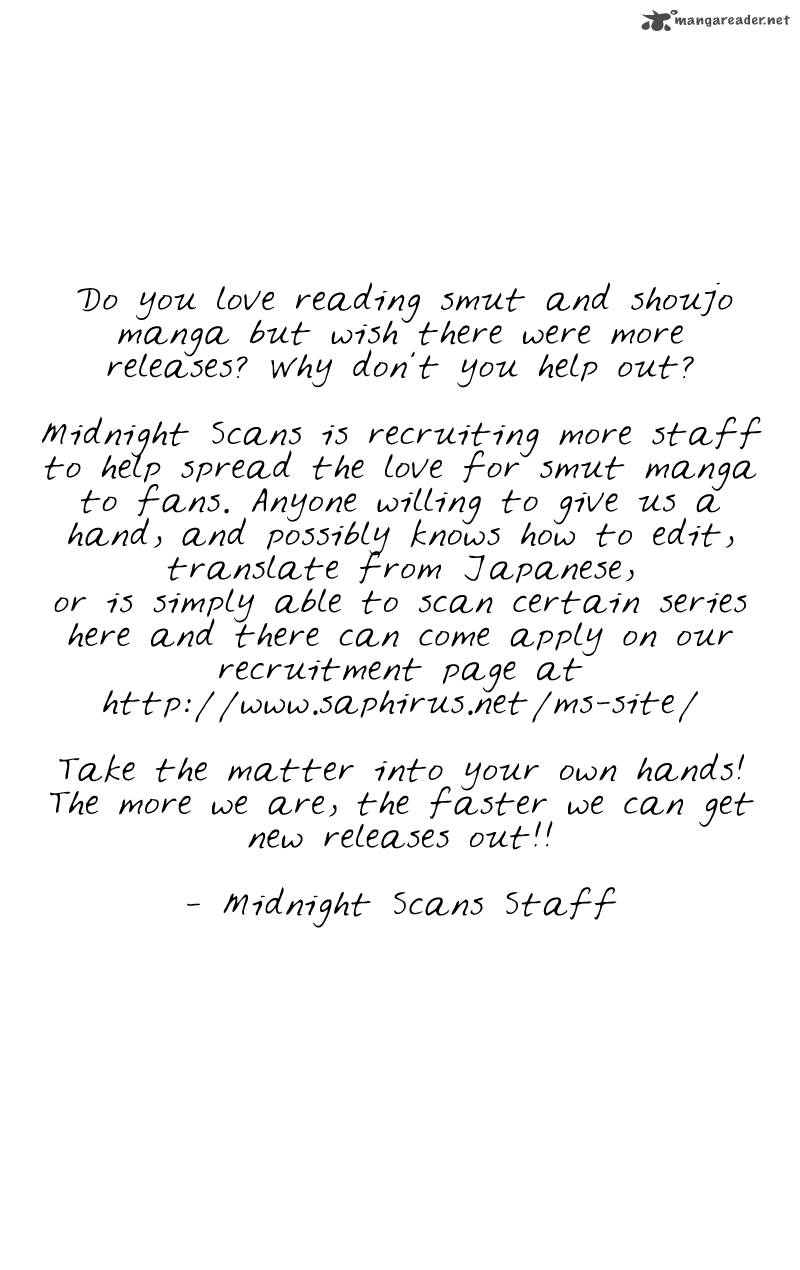 mangareader.net
Do you love reading smut and shoujo
manga but wish there were more
releases? Why don't you help out?
Midnight Scans is recruiting more staff
to help spread the love for smut manga
to fans. Anyone willing to give us a
hand, and possibly knows how to edit,
translate from Japanese,
or is simply able to scan certain series
here and there can come apply on our
recruitment page at
http://www.saphirus.net/ms-site/
Take the matter into your own hands!
The more we are, the faster we can get
new releases out!!
- Midnight Scans Staff